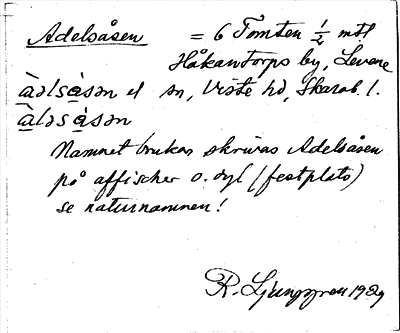 Adelsåsen = 6 Tomten ½ mtl
Håkantorps by, Levene
àəlsàsən el sn, Viste hd, Skarab. l.
àləsàsən
Namnet brukar skrivas Adelsåsen
på affischer o. dyl (festplats)
se naturnamnen!
R. Ljunggren 1929